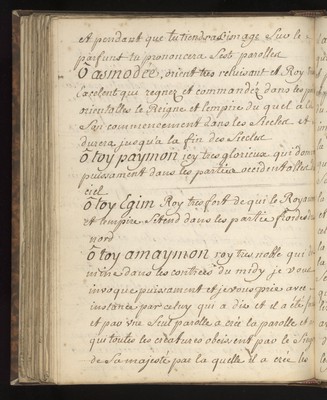 et pendant que tu tiendras l'image sur le
parfunt tu prononcera Sest parolles
Ô asmodée, orient tres reluisant et Roy tres
Excelent qui regnez et commandez dans les par
orientalles le Reigne et lempire du quel a eu
Son commencement dans les Siecles et
durera jusqua la fin des Siecles
Ô toy paymon, roy tres glorieux qui domi
puissament dans les parties occidentalles du
ciel
Ô toy Egim Roy tres fort de qui le Royaume
et lempire S'étend dans les partie froides du
nord
Ô toy amaymon roy tres noble qui do
mine dans les contrées du midy je vous
invoque puissament et je vous prie avec
instance par celuy qui a dis et il a été fait
et par une Seul parolle a crée la parolle et
qui toutes les créatures obeisent par le
de Sa majesté par la quelle il a crée les